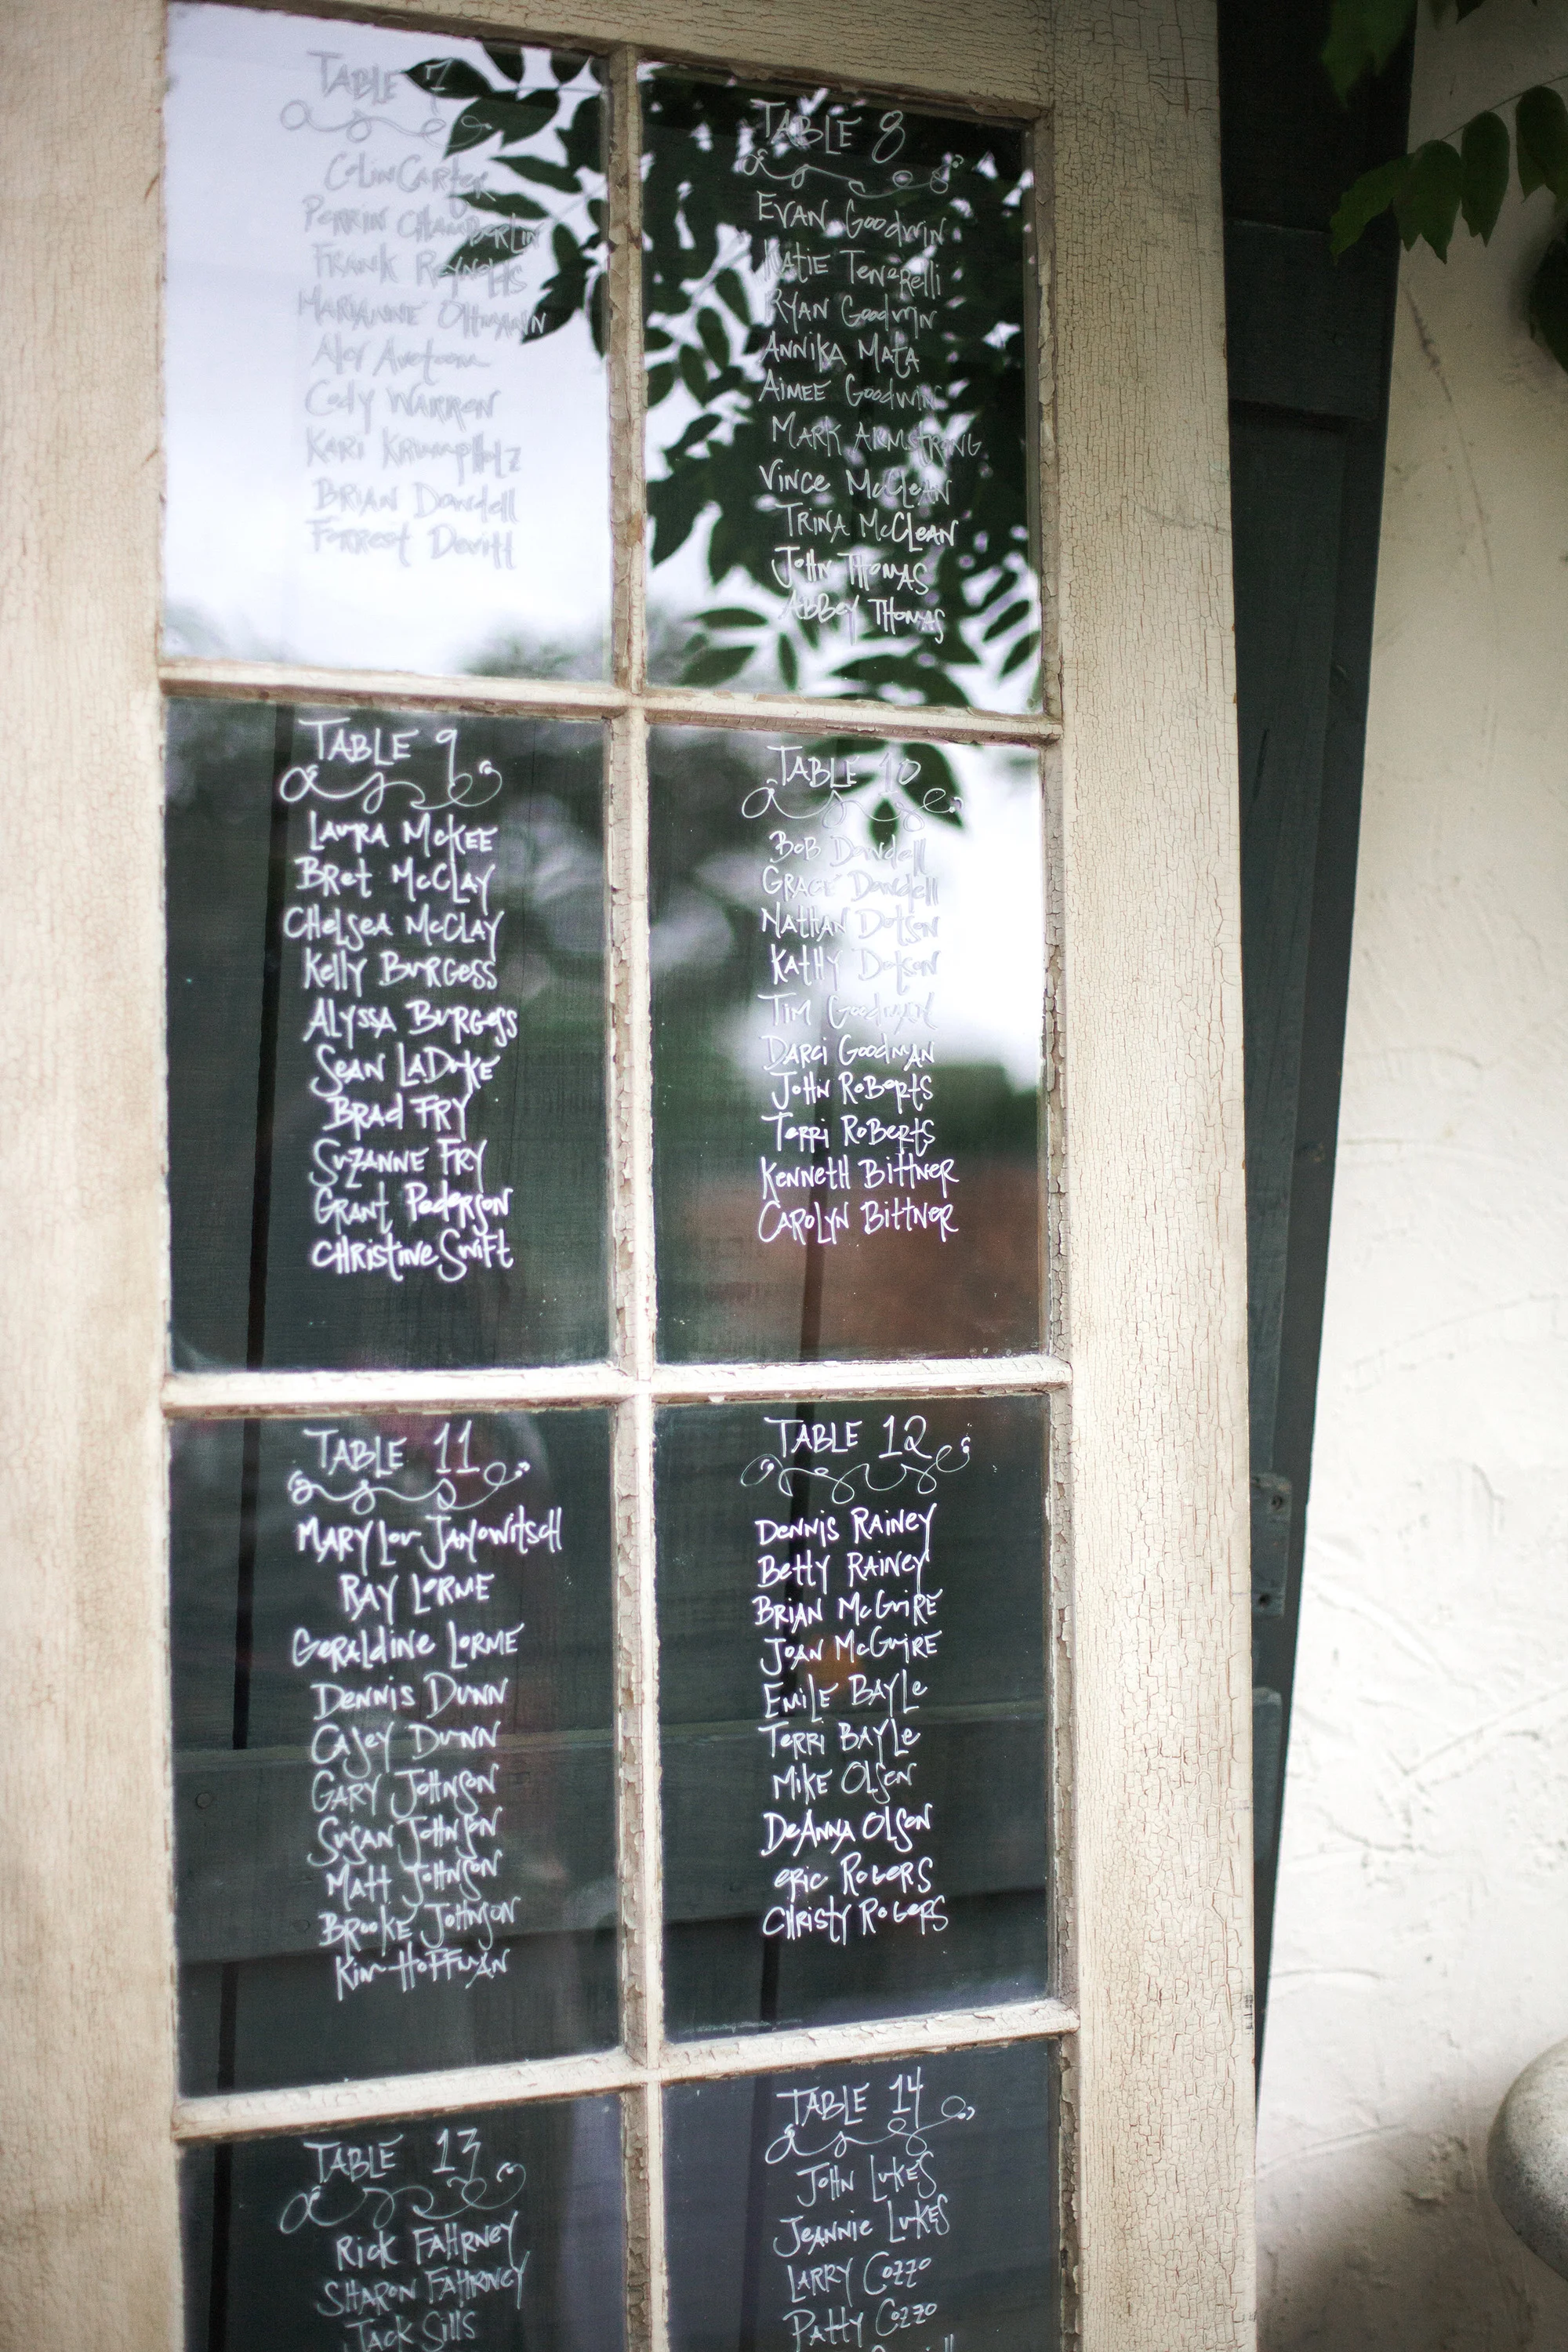 TABLE 7
Colin Carter
Perrin Chamberlin
Frank Reynolds
Marianne Ohmann
Cody Warren
Kari Krumpholz
Brian Dowdell
Forrest Devitt
TABLE 8
Evan Goodwin
Katie Tenorelli
Ryan Goodwin
Annika Mata
Aimee Goodwin
Mark Armstrong
Vince McClean
Trina McClean
John Thomas
Abbey Thomas
TABLE 9
Laura McKee
Bret McClay
Chelsea McClay
Kelly Burgess
Alyssa Burgess
Sean LaDuke
Brad Fry
Suzanne Fry
Grant Pederson
Christine Swift
TABLE 10
Bob Dowdell
Grace Dowdell
Nathan Dotson
Kathy Dotson
Tim Goodman
Darci Goodman
John Roberts
Terri Roberts
Kenneth Bittner
Carolyn Bittner
TABLE 11
Mary Lou Janowitsch
Ray Lorme
Geraldine Lorme
Dennis Dunn
Casey Dunn
Gary Johnson
Susan Johnson
Matt Johnson
Brooke Johnson
Kim Hoffman
TABLE 12
Dennis Rainey
Betty Rainey
Brian McGuire
Joan McGuire
Emile Bayle
Terri Bayle
Mike Olsen
DeAnna Olson
Eric Rogers
Christy Rogers
TABLE 13
Rick Fahrney
Sharon Fahrney
Jack Sills
TABLE 14
John Lukes
Jeannie Lukes
Larry Cozzo
Patty Cozzo